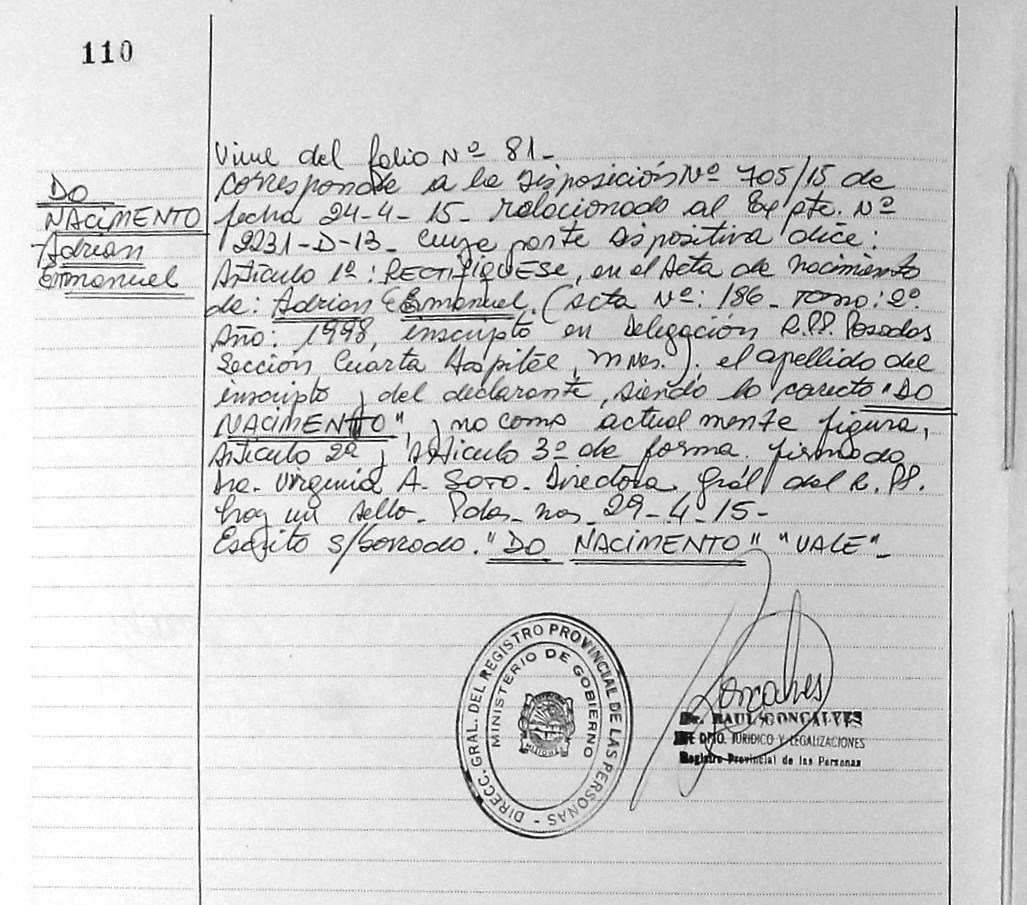 110
DO
NACIMENTO
Adrian
Emmanuel
Viene del folio Nº 81-
corresponde a la Disposición Nº 705/15 de
fecha 24-4-15- relacionado al Expte. Nº
2231-D-13- cuya parte dispositiva dice:
Artículo 1º: RECTIFIQUESE, en el Acta de nacimiento
de: Adrian Emmanuel. (Acta Nº: 186- Tomo: 2º
Año: 1998, inscripto en Delegación R.PP. Posadas
Sección Cuarta Hospital, Mnes.). el apellido del
inscripto y del declarante, siendo lo correcto "DO
NACIMENTO", y no como actualmente figura,
Artículo 2º y Artículo 3º de forma. firmado
Dra. Virginia A. Soto. Directora Gral del R.PP.
hay un sello- Pdas- mnes 29-4-15-
Escrito s/borrado. "DO NACIMENTO" "VALE"-
DIRECC. GRAL. DEL REGISTRO PROVINCIAL DE LAS PERSONAS -
MINISTERIO DE GOBIERNO
MISIONES
Dr. RAUL GONCALVES
JEFE DPTO. JURIDICO Y LEGALIZACIONES
Registro Provincial de las Personas